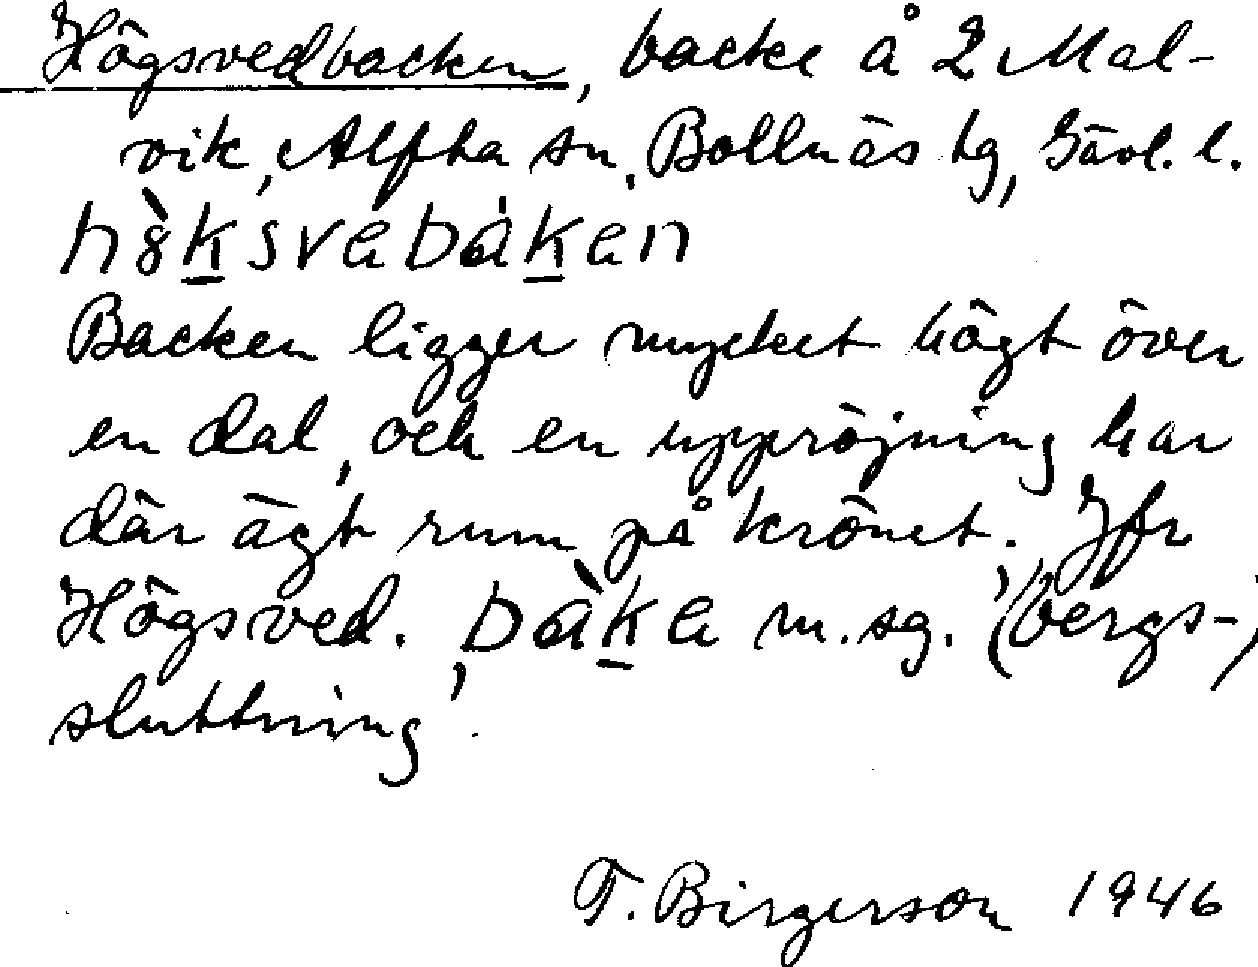 Högsvedbacken, backe å 2 Mal-
vik, Alfta sn, Bollnäs tg, Gävl. l.
Backen ligger mycket högt över
en dal, och en uppröjning har
där ägt rum på krönet. Jfr
Högsved. bàka m.sg. '(bergs-)
sluttning'.
T. Birgerson 1946